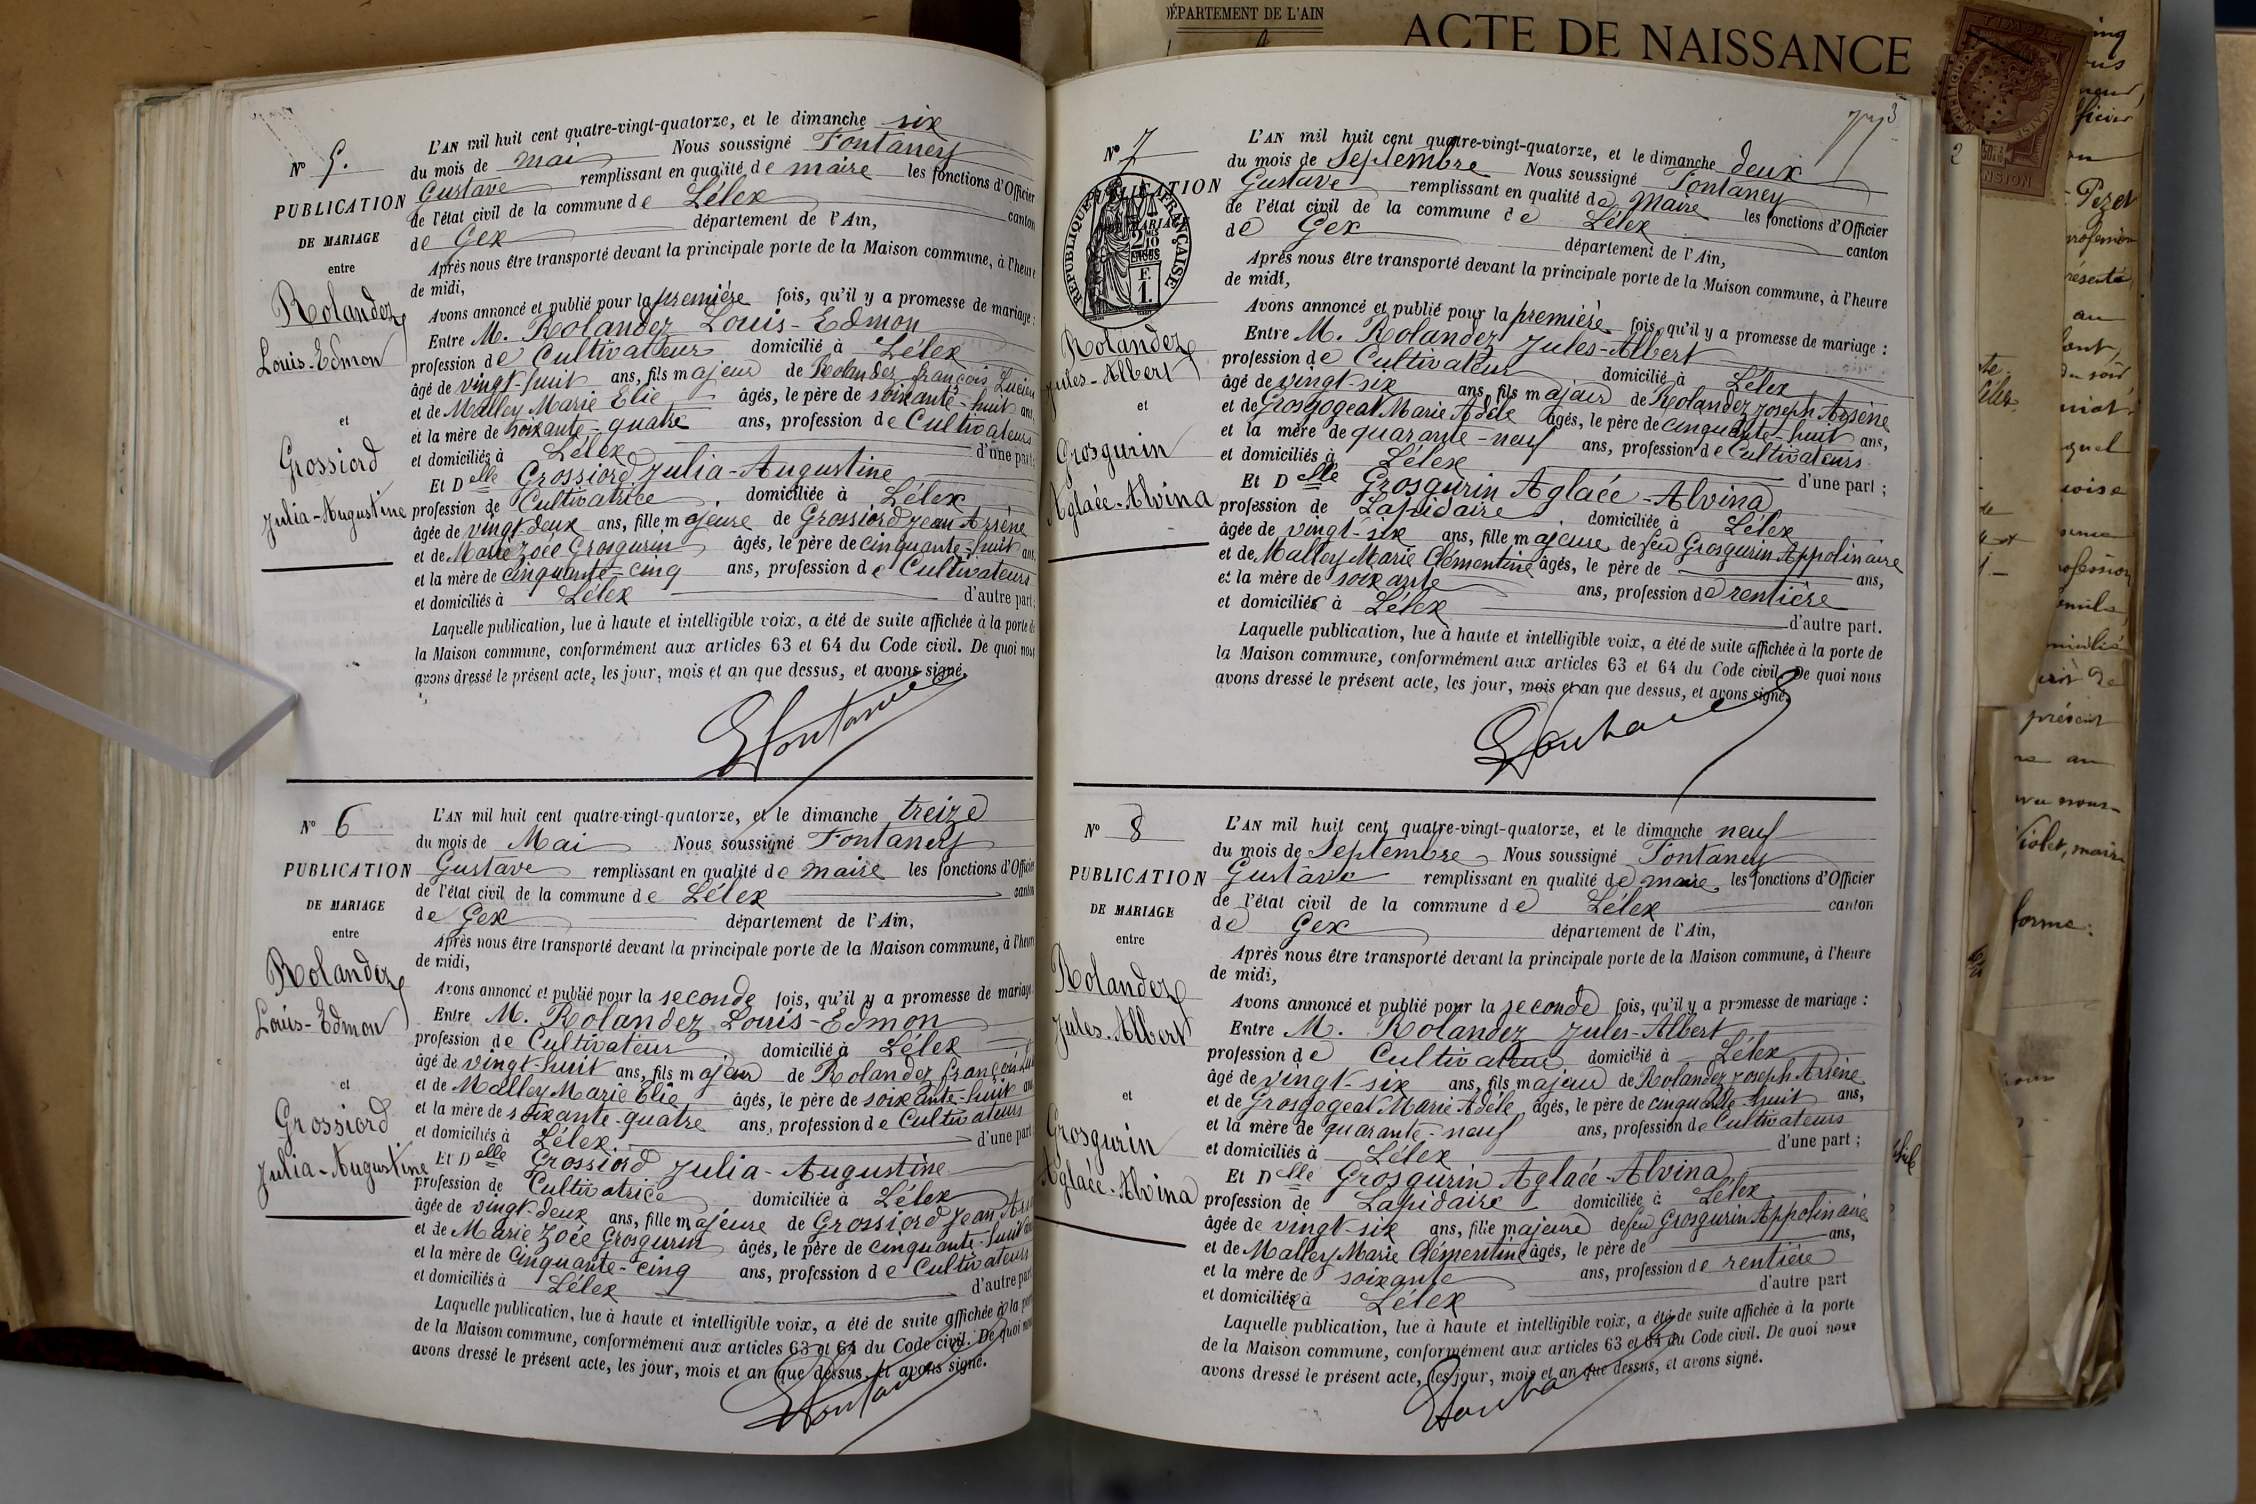 N° 5.
PUBLICATION
DE MARIAGE
entre
Rolandez
Louis-Edmon
et
Grossiord
Julia-Augustine
L'AN mil huit cent quatre-vingt-quatorze, et le dimanche six
du mois de mai Nous soussigné Fontaney
Gustave remplissant en qualité de maire les fonctions d'Officier
de l'état civil de la commune de Lélex canton
de Gex département de l'Ain,
Après nous être transporté devant la principale porte de la Maison commune, à l'heure
de midi,
Avons annoncé et publié pour la première fois, qu'il y a promesse de mariage :
Entre M. Rolandez Louis-Edmon
profession de Cultivateur domicilié à Lélex
âgé de vingt-huit ans, fils majeur de Rolandez françois Lucien
et de Malley Marie Elie âgés, le père de soixante-huit ans,
et la mère de soixante-quatre ans, profession de Cultivateurs
et domiciliés à Lélex d'une part;
Et Delle Grossiord Julia-Augustine
profession de Cultivatrice domiciliée à Lélex
âgée de vingt-deux ans, fille majeure de Grossiord Jean Arsène
et de Marie Zoée Grosgurin âgés, le père de cinquante-huit ans,
et la mère de cinquante-cinq ans, profession de Cultivateurs
et domiciliés à Lélex d'autre part;
Laquelle publication, lue à haute et intelligible voix, a été de suite affichée à la porte de
la Maison commune, conformément aux articles 63 et 64 du Code civil. De quoi nous
avons dressé le présent acte, les jour, mois et an que dessus, et avons signé.
GFontaney
N° 6
PUBLICATION
DE MARIAGE
entre
Rolandez
Louis-Edmon
et
Grossiord
Julia-Augustine
L'AN mil huit cent quatre-vingt-quatorze, et le dimanche treize
du mois de Mai Nous soussigné Fontaney
Gustave remplissant en qualité de maire les fonctions d'Officier
de l'état civil de la commune de Lélex canton
de Gex département de l'Ain,
Après nous être transporté devant la principale porte de la Maison commune, à l'heure
de midi,
Avons annoncé et publié pour la seconde fois, qu'il y a promesse de mariage
Entre M. Rolandez Louis-Edmon
profession de Cultivateur domicilié à Lélex
âgé de vingt-huit ans, fils majeur de Rolandez françois
et de Malley Marie Elie âgés, le père de soixante-huit ans
et la mère de soixante-quatre ans, profession de Cultivateurs
et domiciliés à Lélex d'une part
Et Delle Grossiord Julia-Augustine
profession de Cultivatrice domiciliée à Lélex
âgée de vingt-deux ans, fille majeure de Grossiord Jean
et de Marie Zoée Grosgurin âgés, le père de cinquante-huit
et la mère de cinquante-cinq ans, profession de Cultivateurs
et domiciliés à Lélex d'autre part
Laquelle publication, lue à haute et intelligible voix, a été de suite affichée à la porte
de la Maison commune, conformément aux articles 63 et 64 du Code civil. De quoi nous
avons dressé le présent acte, les jour, mois et an que dessus, et avons signé.
GFontaney
DÉPARTEMENT DE L'AIN
ACTE DE NAISSANCE
3
N° 7
PUBLICATION
RÉPUBLIQUE FRANÇAISE
2/10 EN SUS
F. 1.
Rolandez
Jules-Albert
et
Grosgurin
Aglaée-Alvina
L'AN mil huit cent quatre-vingt-quatorze, et le dimanche deux
du mois de Septembre Nous soussigné Fontaney
Gustave remplissant en qualité de Maire les fonctions d'Officier
de l'état civil de la commune de Lélex canton
de Gex département de l'Ain,
Après nous être transporté devant la principale porte de la Maison commune, à l'heure
de midi,
Avons annoncé et publié pour la première fois, qu'il y a promesse de mariage :
Entre M. Rolandez Jules-Albert
profession de Cultivateur domicilié à Lélex
âgé de vingt-six ans, fils majeur de Rolandez Joseph Arsène
et de Grosgogeat Marie Adèle âgés, le père de cinquante-huit ans,
et la mère de quarante-neuf ans, profession de Cultivateurs
et domiciliés à Lélex d'une part ;
Et Delle Grosgurin Aglaée-Alvina
profession de Lapidaire domiciliée à Lélex
âgée de vingt-six ans, fille majeure de feu Grosgurin Appolinaire
et de Malley Marie Clémentine âgés, le père de ans,
et la mère de soixante ans, profession de rentière
et domiciliés à Lélex d'autre part.
Laquelle publication, lue à haute et intelligible voix, a été de suite affichée à la porte de
la Maison commune, conformément aux articles 63 et 64 du Code civil. De quoi nous
avons dressé le présent acte, les jour, mois et an que dessus, et avons signé.
GFontaney
N° 8
PUBLICATION
DE MARIAGE
entre
Rolandez
Jules-Albert
et
Grosgurin
Aglaée-Alvina
L'AN mil huit cent quatre-vingt-quatorze, et le dimanche neuf
du mois de Septembre Nous soussigné Fontaney
Gustave remplissant en qualité de maire les fonctions d'Officier
de l'état civil de la commune de Lélex canton
de Gex département de l'Ain,
Après nous être transporté devant la principale porte de la Maison commune, à l'heure
de midi,
Avons annoncé et publié pour la seconde fois, qu'il y a promesse de mariage :
Entre M. Rolandez Jules-Albert
profession de Cultivateur domicilié à Lélex
âgé de vingt-six ans, fils majeur de Rolandez Joseph Arsène
et de Grosgogeat Marie Adèle âgés, le père de cinquante-huit ans,
et la mère de quarante-neuf ans, profession de Cultivateurs
et domiciliés à Lélex d'une part ;
Et Delle Grosgurin Aglaée-Alvina
profession de Lapidaire domiciliée à Lélex
âgée de vingt-six ans, fille majeure de feu Grosgurin Appolinaire
et de Malley Marie Clémentine âgés, le père de ans,
et la mère de soixante ans, profession de rentière
et domiciliés à Lélex d'autre part
Laquelle publication, lue à haute et intelligible voix, a été de suite affichée à la porte
de la Maison commune, conformément aux articles 63 et 64 du Code civil. De quoi nous
avons dressé le présent acte, les jour, mois et an que dessus, et avons signé.
GFontaney
2
Pezet
au
présent
Violet, maire
forme: